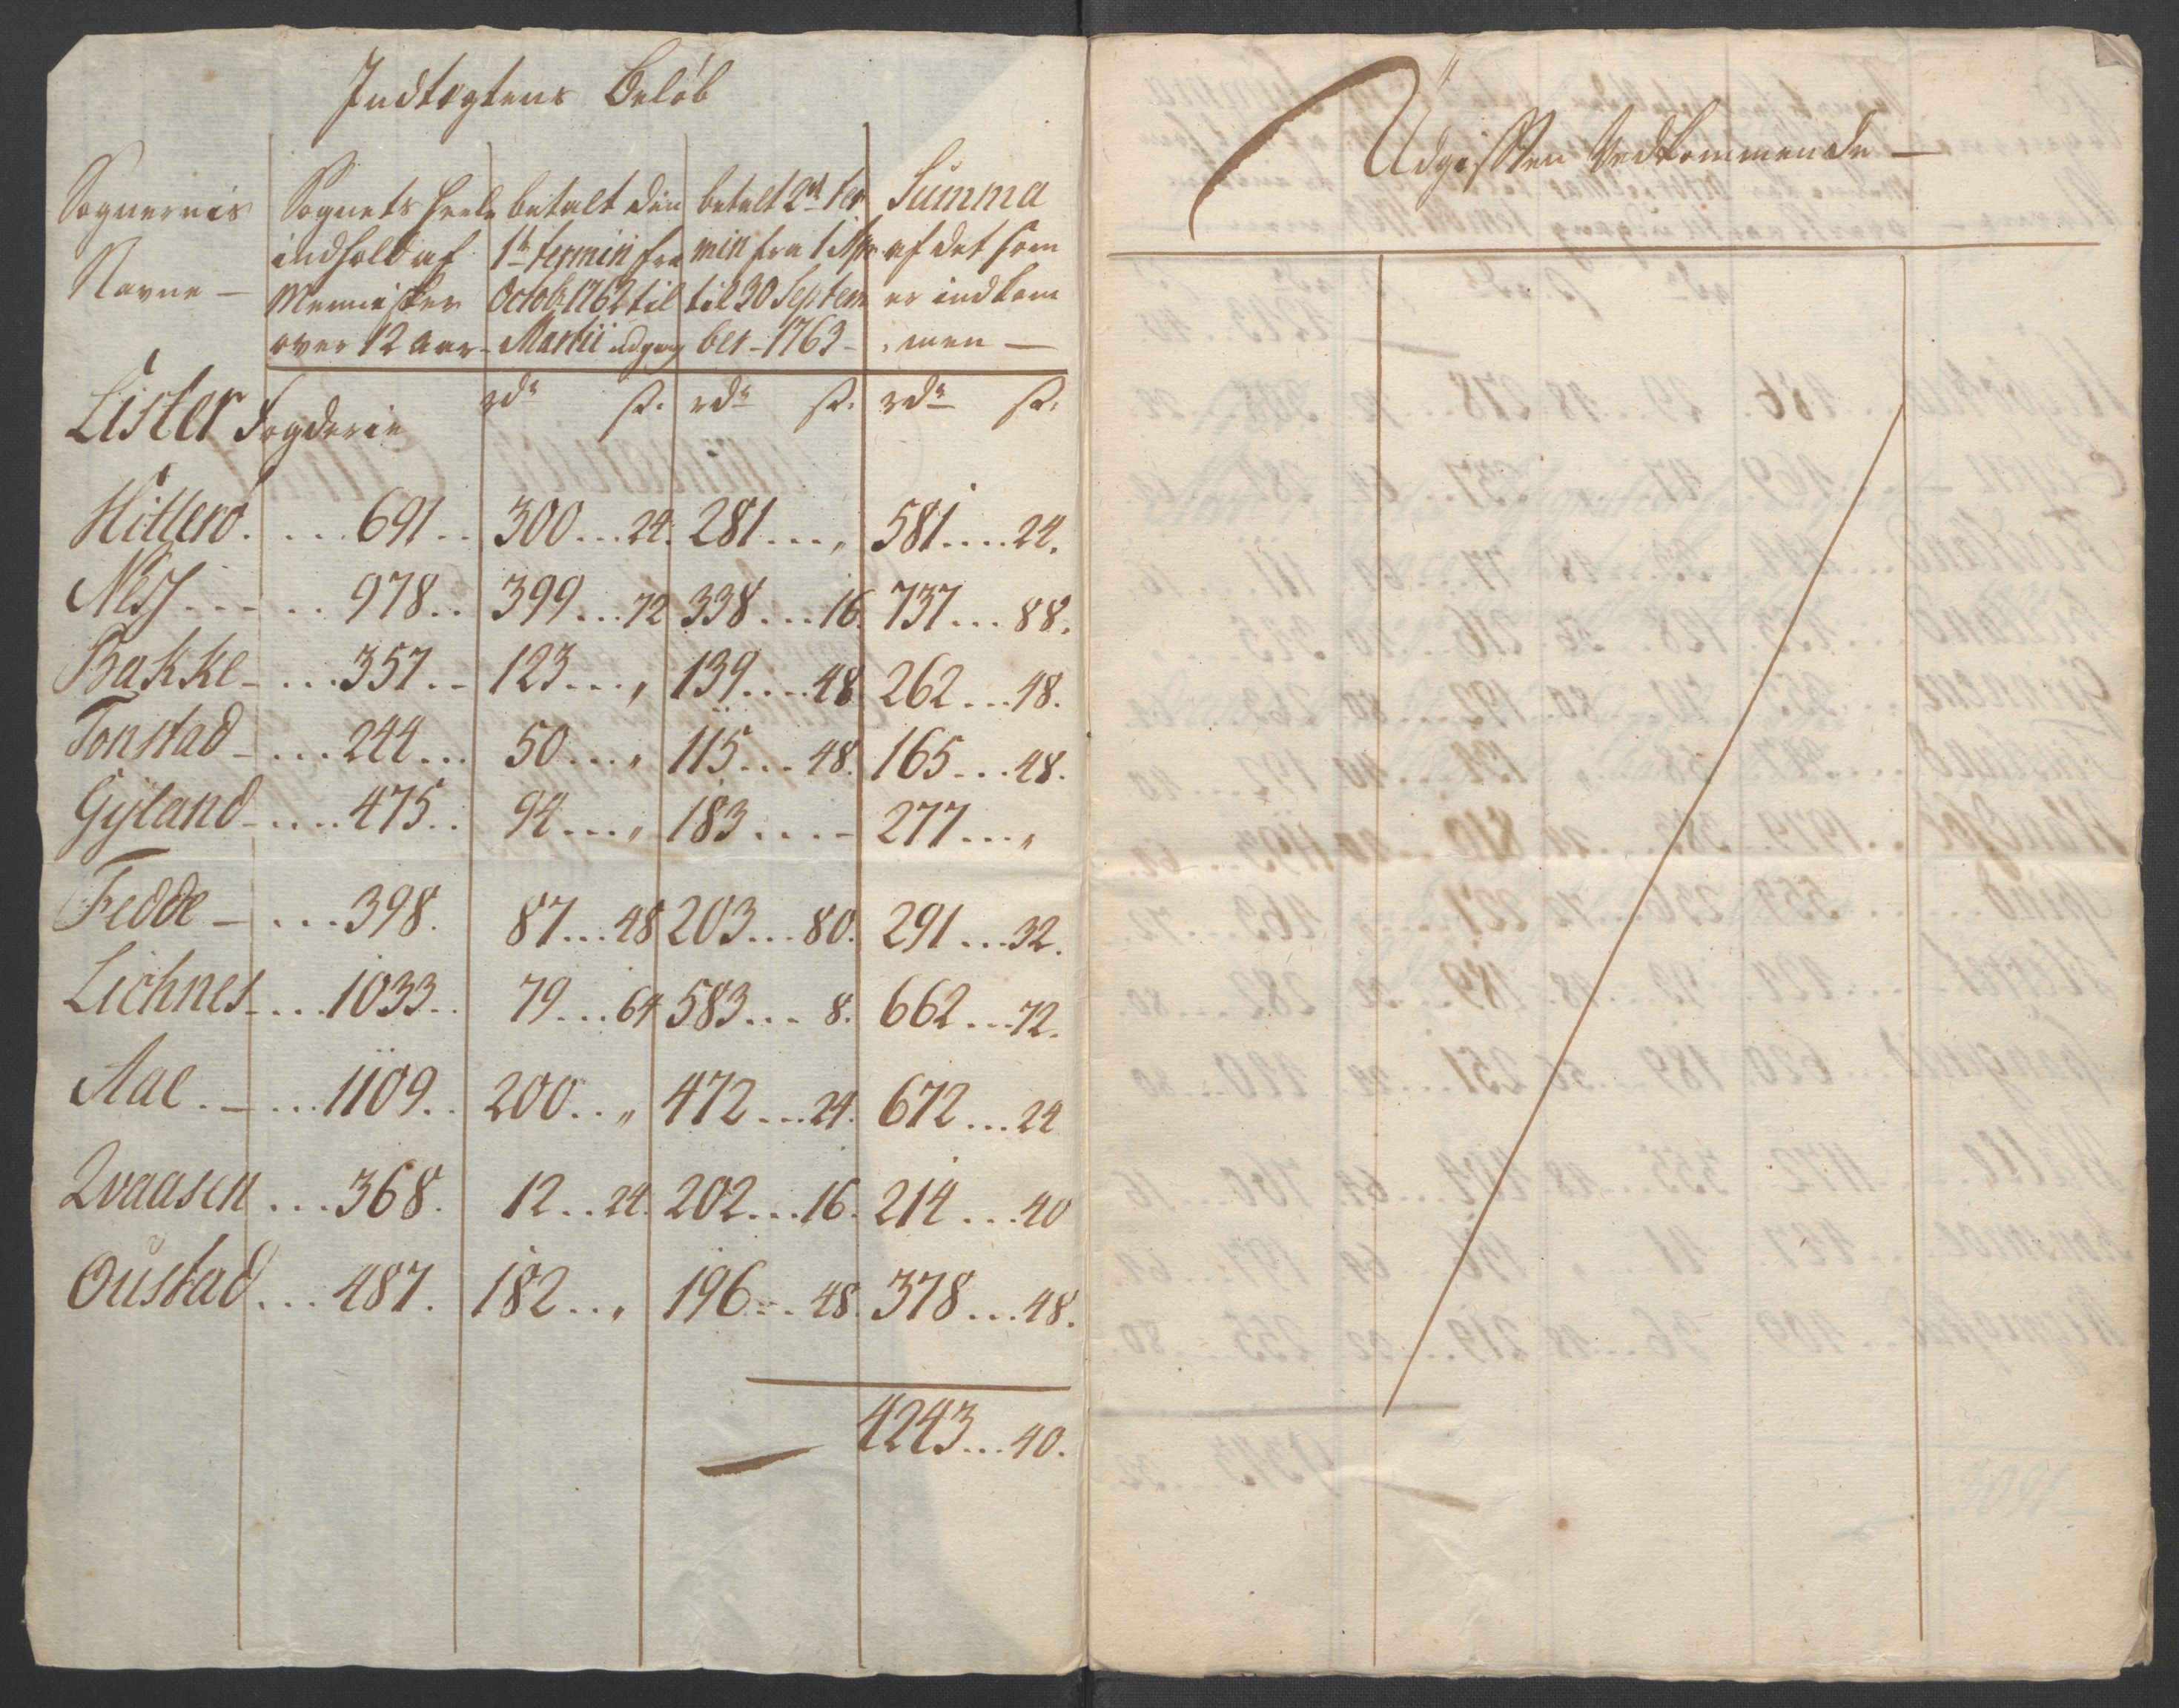 Indtægtens Beløb
Sognernis Navne —
Sognets heele indhold af Mennisker over 12 aar
betalt den 1te termin fra Octobr 1762 til Martii udgang
betalt 2den termin fra 1 Apr. til 30 September — 1763 —
Summa af det som er indkommen —
Lister Fogderie
rdr s. rdr s. rdr s.
Hitterö. . . . 691 . . 300 . . . 24. 281 . . . „ 581 . . . . 24.
Nes . . . . . 978 . . 399 . . . 72 338 . . . 16. 737 . . . 88.
Bakke . . . . 357 . . 123 . . . „ 139 . . . . 48 262 . . . 48.
Tonstad . . . 244 . . . 50 . . . „ 115 . . . 48. 165 . . . 48.
Gyland . . . . 475 . . 94 . . . „ 183 . . . . 277 . . . „
Fedde — . . . 398. 87 . . . 48 203 . . . 80. 291 . . . 32.
Lichnes . . . 1033 . . 79 . . . 64 583 . . . 8. 662 . . . 72.
Aae . — . . . 1109 . . 200 . . „ 472 . . . 24. 672 . . . 24
Qvaasen . . . 368. 12 . . 24. 202 . . . 16. 214 . . . 40
Oustad . . . 487. 182 . . „ 196 . . . 48. 378 . . . 48.
4243 . . . 40.
Udgiften Vedkommende —